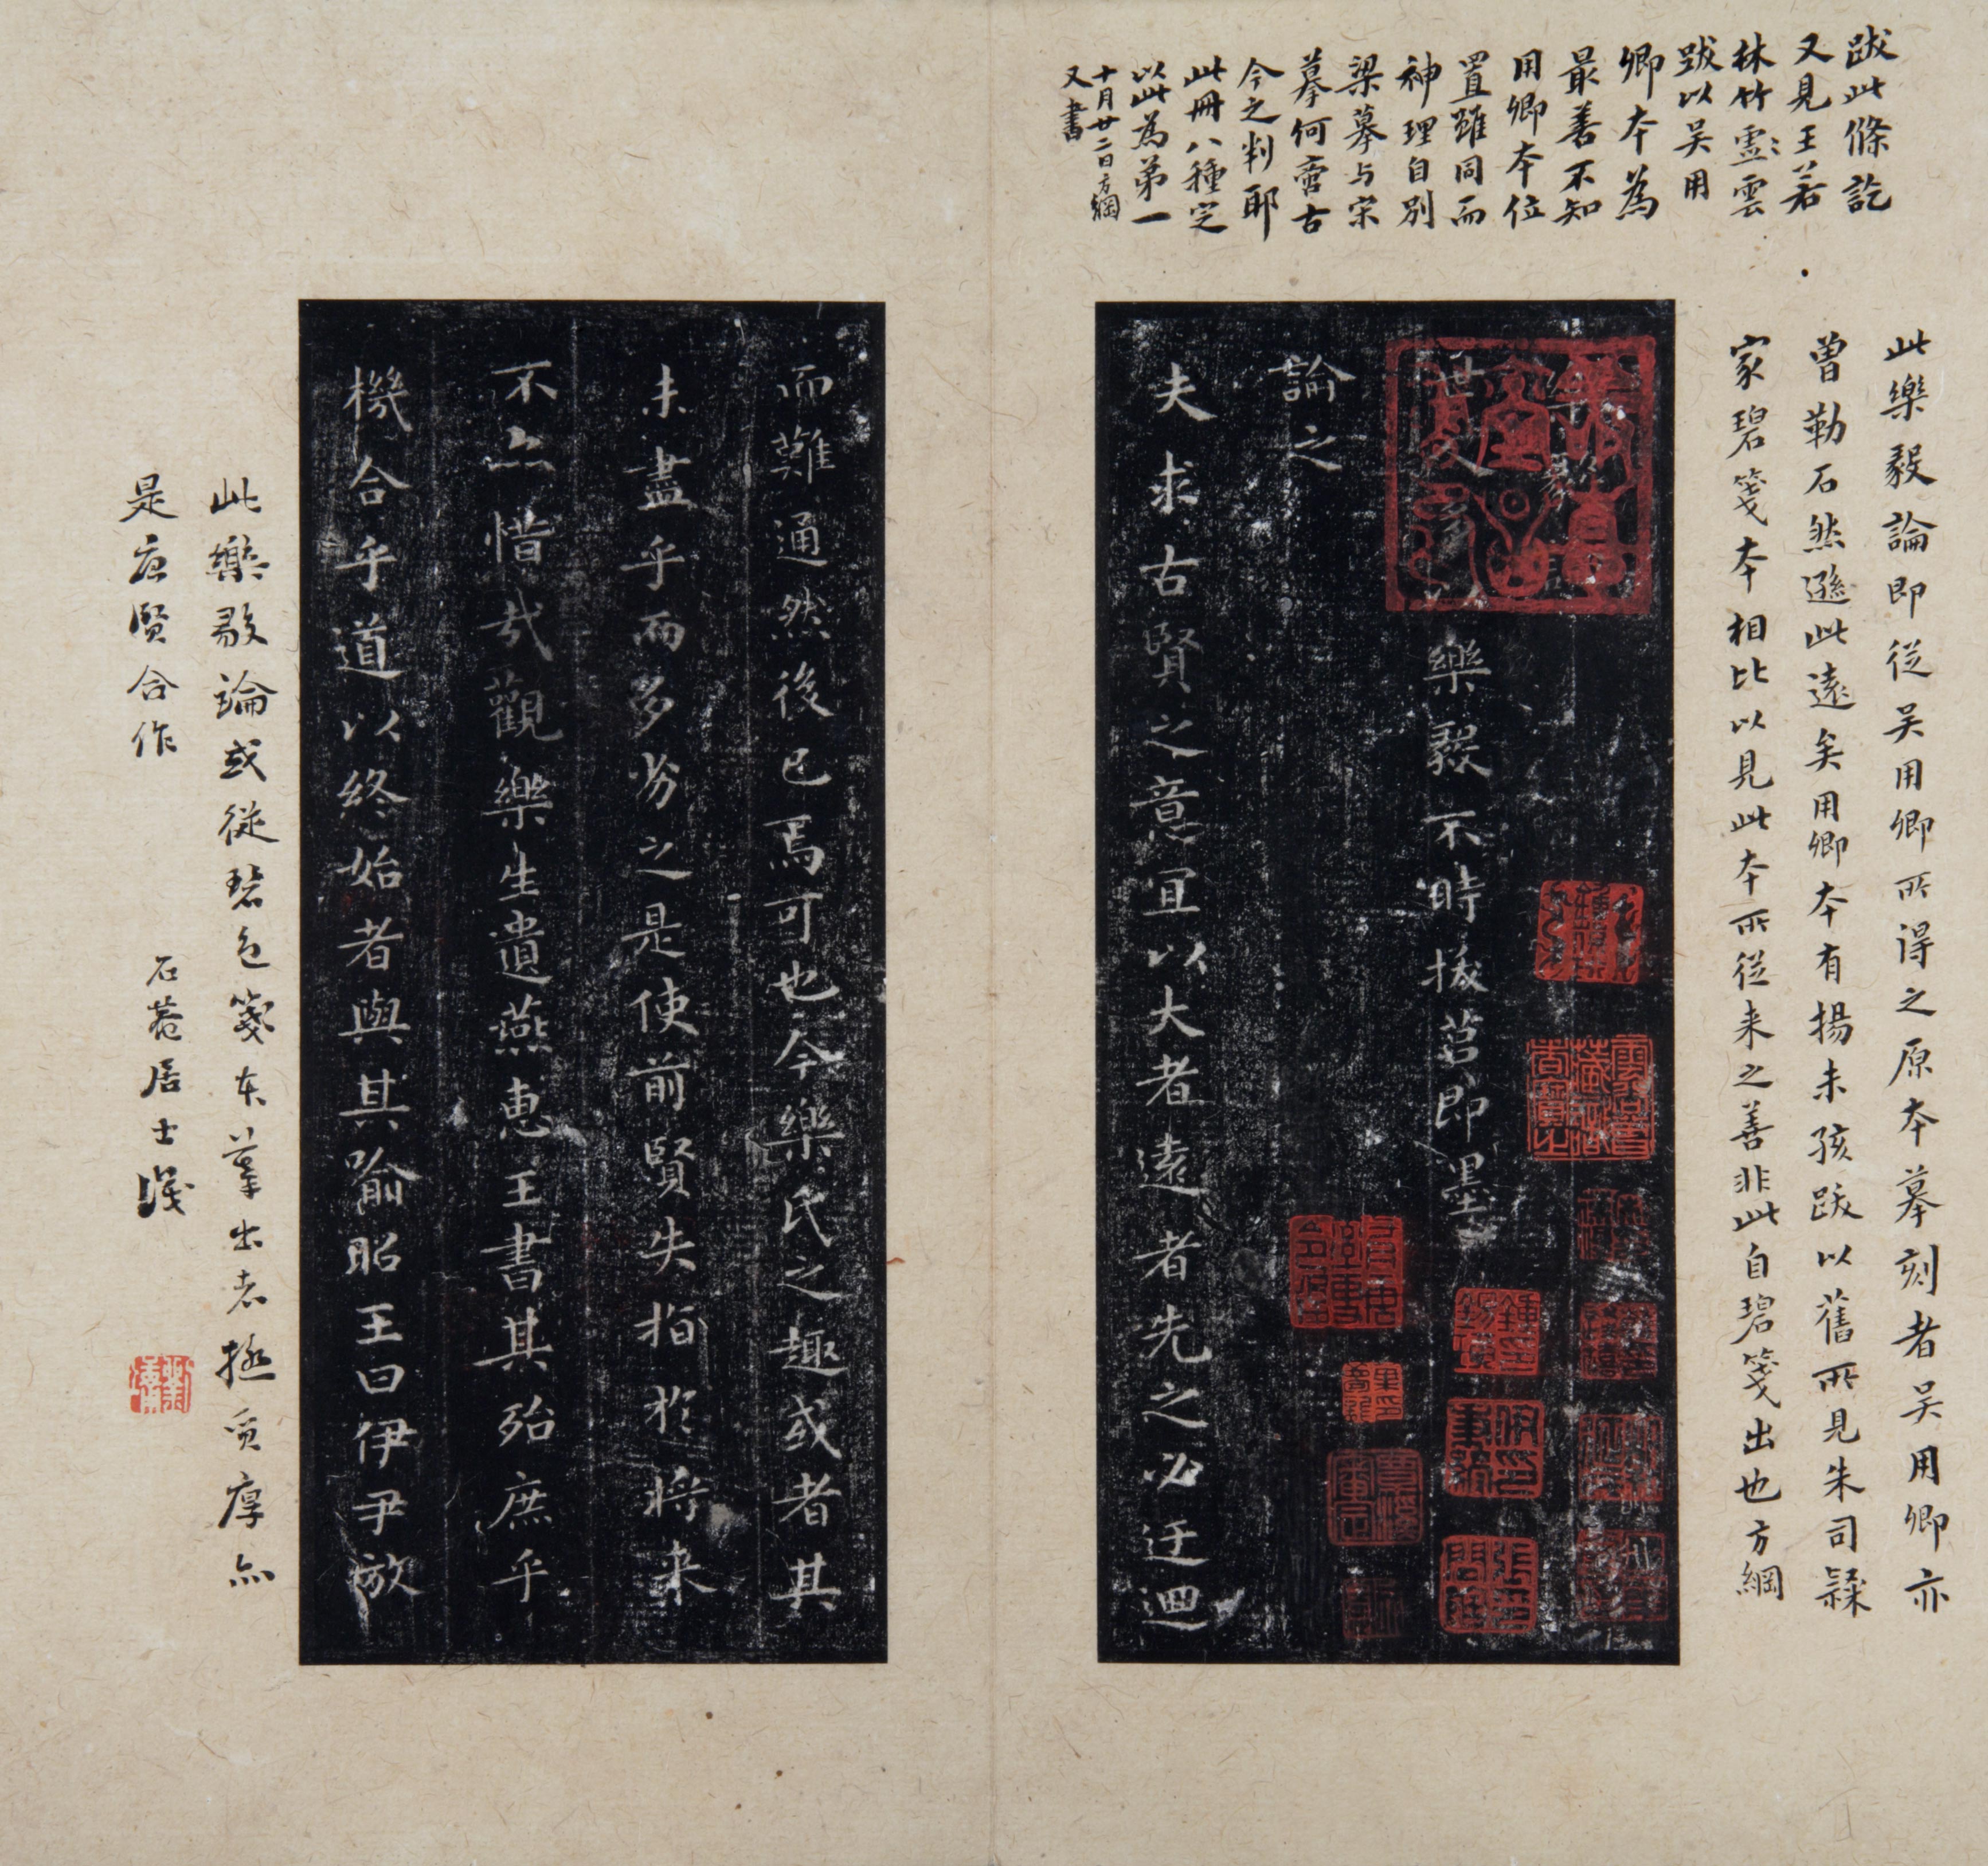 跋此條訖
又見王若
林竹雲雲
跋以吴用
卿本為
最善不知
用卿本位
置雖同而
神理自別
梁摹与宋
摹何啻古
今之判耶
此冊八種定
以此為第一
十月廿二日方綱
又書
此樂毅論即從吴用卿所得之原本摹刻者吴用卿亦
曾勒石然遜此遠矣用卿本有揚未孩跋以舊所見朱司
家碧箋本相比以見此本所從来之善非此自碧箋出也方綱
樂毅
世人多以樂毅不時拔莒即墨
論之
夫求古賢之意宜以大者遠者先之必迂迴
而難通然後已焉可也今樂氏之趣或者其
未盡乎而多劣之是使前賢失指於將来
不亦惜哉觀樂生遺燕惠王書其殆庶乎
機合乎道以終始者與其喻昭王曰伊尹放
此樂毅論或從碧色箋本摹出者極質厚亦
是唐賢合作
石菴居士識